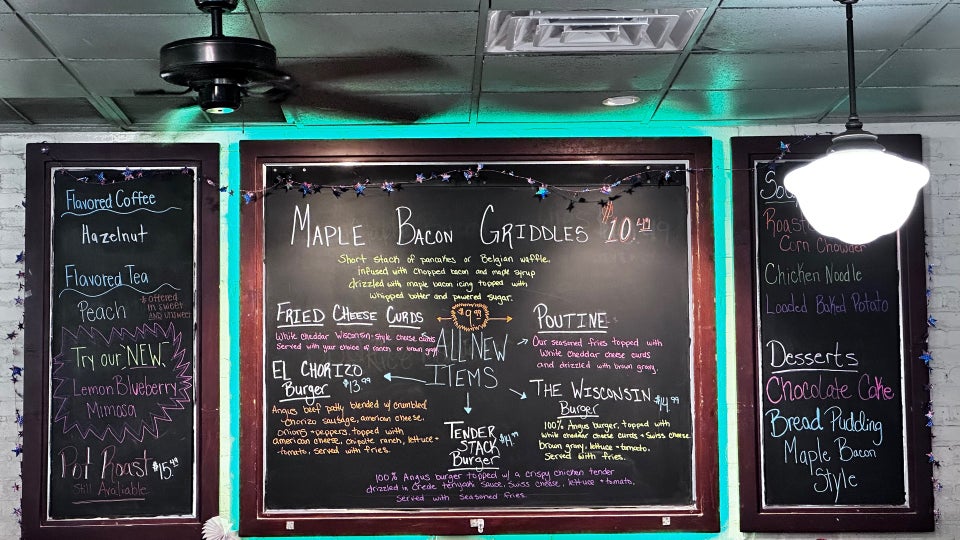 Flavored Coffee
Hazelnut
Flavored Tea
Peach
* Offered
in sweet
and unsweet
Try our "NEW"
Lemon Blueberry
Mimosa
Pot Roast $15.49
Still Available
Maple Bacon Griddles $10.49
Short stack of pancakes or Belgian waffle,
infused with chopped bacon and maple syrup
drizzled with maple bacon icing topped with
whipped butter and powered sugar.
Fried Cheese Curds
$9.99
White cheddar Wisconsin-style cheese curds
Served with your choice of ranch or brown gravy
Poutine
Our seasoned fries topped with
White cheddar cheese curds
and drizzled with brown gravy.
All New
Items
El Chorizo
Burger $13.99
Angus beef patty blended w/ crumbled
Chorizo sausage, american cheese,
onions + peppers, topped with
american cheese, chipotle ranch, lettuce +
tomato. Served with fries.
The Wisconsin $14.99
Burger
100% Angus burger, topped with
white cheddar cheese curds + Swiss cheese
brown gravy, lettuce + tomato.
Served with fries.
Tender
Stack $14.99
Burger
100% Angus burger topped w/ a crispy chicken tender
drizzled in Creole teriyaki sauce, Swiss cheese, lettuce + tomato.
Served with Seasoned fries.
Roast
Corn Chowder
Chicken Noodle
Loaded Baked Potato
Desserts
Chocolate Cake
Bread Pudding
Maple Bacon
Style